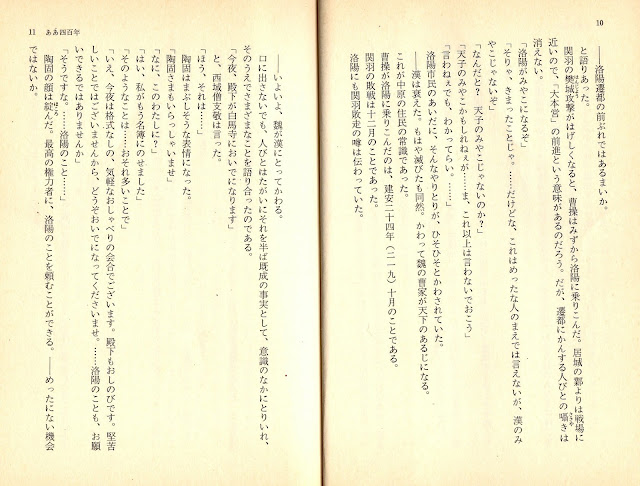 10
――洛陽遷都の前ぶれではあるまいか。
と語りあった。
関羽の樊城攻撃がはげしくなると、曹操はみずから洛陽に乗りこんだ。居城の鄴よりは戦場に
近いので、「大本営」の前進という意味があるのだろう。だが、遷都にかんする人びとの囁きは
消えない。
「洛陽がみやこになるぞ」
「そりゃ、きまったことじゃ。……だけどな、これはめったな人のまえでは言えないが、漢のみ
やこじゃないぞ」
「なんだと？　天子のみやこじゃないのか？」
「天子のみやこかもしれねぇが……ま、これ以上は言わないでおこう」
「言わねぇでも、わかってらい。……」
洛陽市民のあいだに、そんなやりとりが、ひそひそとかわされていた。
――漢は衰えた。もはや滅びたも同然。かわって魏の曹家が天下のあるじになる。
これが中原の住民の常識であった。
曹操が洛陽に乗りこんだのは、建安二十四年（二一九）十月のことである。
関羽の敗戦は十二月のことであった。
洛陽にも関羽敗走の噂は伝わっていた。
11　ああ四百年
――いよいよ、魏が漢にとってかわる。
口に出さないでも、人びとはたがいにそれを半ば既成の事実として、意識のなかにとりいれ、
そのうえでさまざまなことを語り合ったのである。
「今夜、殿下が白馬寺においでになります」
と、西域僧支敬は言った。
「ほう、それは……」
陶固はまぶしそうな表情になった。
「陶固さまもいらっしゃいませ」
「なに、このわたしに？」
「はい、私がもう名簿にのせました」
「そのようなことは……おそれ多いことで」
「いえ、今夜は格式なしの、気軽なおしゃべりの会合でございます。殿下もおしのびです。堅苦
しいことではございませんから、どうぞおいでになってくださいませ。……洛陽のことも、お願
いできるではありませんか」
「そうですな。……洛陽のこと……」
陶固の顔は綻んだ。最高の権力者に、洛陽のことを頼むことができる。――めったにない機会
ではないか。